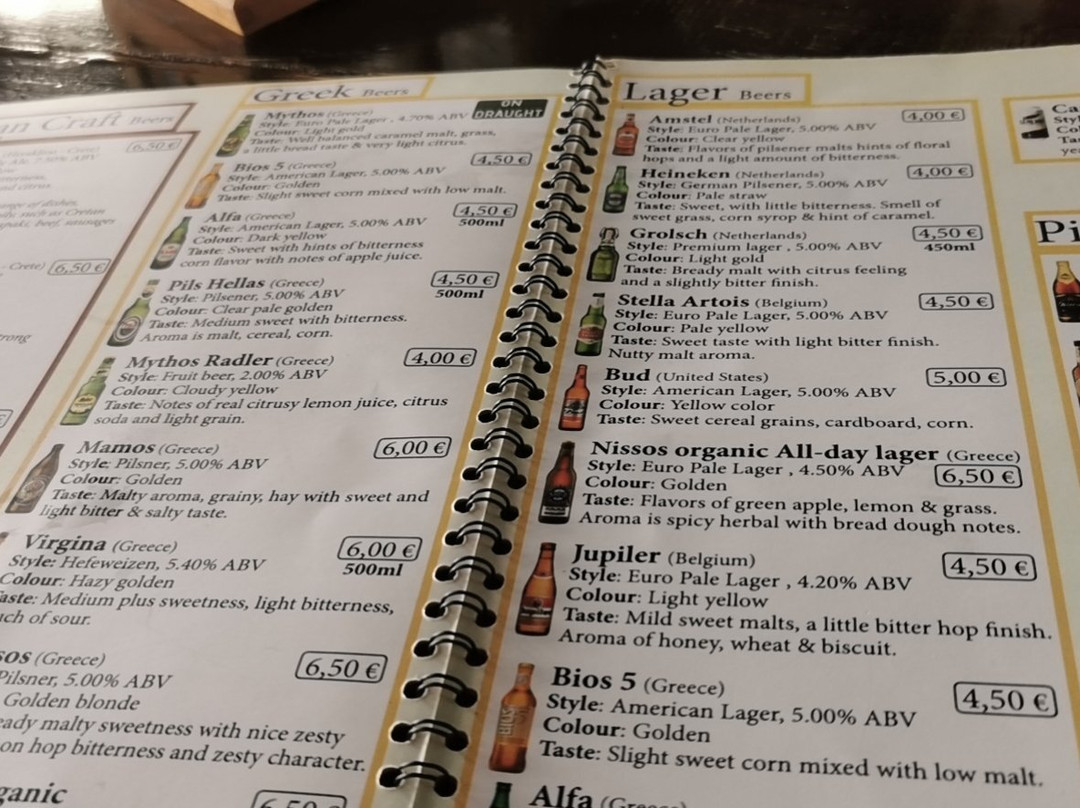 an Craft Beers
6,50 €
6,50 €
Greek Beers
ON
DRAUGHT
Mythos (Greece)
Style: Euro Pale Lager , 4.70% ABV
Colour: Light gold
Taste: Well balanced caramel malt, grass,
a little bread taste & very light citrus.
Bios 5 (Greece)
4,50 €
Style: American Lager, 5.00% ABV
Colour: Golden
Taste: Slight sweet corn mixed with low malt.
Alfa (Greece)
4,50 €
500ml
Style: American Lager, 5.00% ABV
Colour: Dark yellow
Taste: Sweet with hints of bitterness
corn flavor with notes of apple juice.
Pils Hellas (Greece)
4,50 €
500ml
Style: Pilsener, 5.00% ABV
Colour: Clear pale golden
Taste: Medium sweet with bitterness.
Aroma is malt, cereal, corn.
Mythos Radler (Greece)
4,00 €
Style: Fruit beer, 2.00% ABV
Colour: Cloudy yellow
Taste: Notes of real citrusy lemon juice, citrus
soda and light grain.
Mamos (Greece)
6,00 €
Style: Pilsner, 5.00% ABV
Colour: Golden
Taste: Malty aroma, grainy, hay with sweet and
light bitter & salty taste.
Virgina (Greece)
6,00 €
500ml
Style: Hefeweizen, 5.40% ABV
Colour: Hazy golden
aste: Medium plus sweetness, light bitterness,
uch of sour.
sos (Greece)
6,50 €
Pilsner, 5.00% ABV
Golden blonde
eady malty sweetness with nice zesty
on hop bitterness and zesty character.
ganic
6,50 €
Lager Beers
Amstel (Netherlands)
4,00 €
Style: Euro Pale Lager, 5.00% ABV
Colour: Clear yellow
Taste: Flavors of pilsener malts hints of floral
hops and a light amount of bitterness.
Heineken (Netherlands)
4,00 €
Style: German Pilsener, 5.00% ABV
Colour: Pale straw
Taste: Sweet, with little bitterness. Smell of
sweet grass, corn syrup & hint of caramel.
Grolsch (Netherlands)
4,50 €
450ml
Style: Premium lager , 5.00% ABV
Colour: Light gold
Taste: Bready malt with citrus feeling
and a slightly bitter finish.
Stella Artois (Belgium)
4,50 €
Style: Euro Pale Lager, 5.00% ABV
Colour: Pale yellow
Taste: Sweet taste with light bitter finish.
Nutty malt aroma.
Bud (United States)
5,00 €
Style: American Lager, 5.00% ABV
Colour: Yellow color
Taste: Sweet cereal grains, cardboard, corn.
Nissos organic All-day lager (Greece)
6,50 €
Style: Euro Pale Lager , 4.50% ABV
Colour: Golden
Taste: Flavors of green apple, lemon & grass.
Aroma is spicy herbal with bread dough notes.
Jupiler (Belgium)
4,50 €
Style: Euro Pale Lager , 4.20% ABV
Colour: Light yellow
Taste: Mild sweet malts, a little bitter hop finish.
Aroma of honey, wheat & biscuit.
Bios 5 (Greece)
4,50 €
Style: American Lager, 5.00% ABV
Colour: Golden
Taste: Slight sweet corn mixed with low malt.
Alfa (Greece)
Ca
Pi